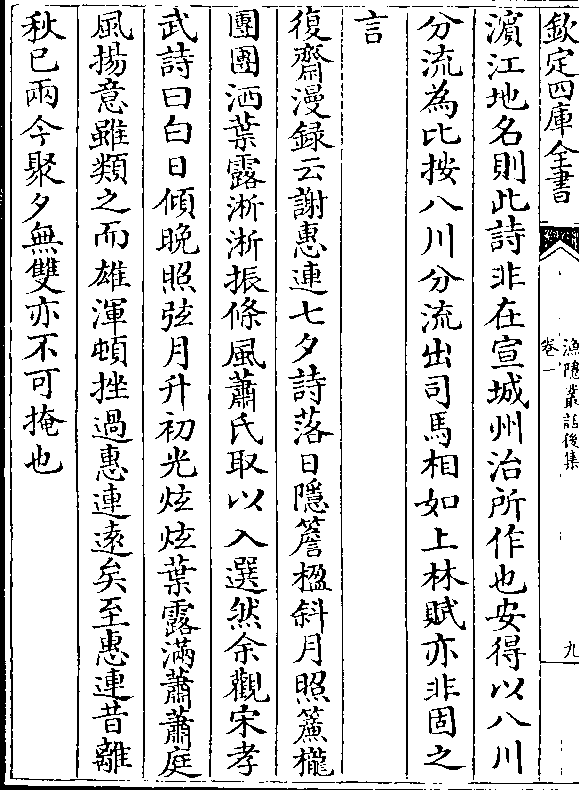 欽定四庫全書
漁隱叢話後集
卷一
九
濵江地名則此詩非在宣城州治所作也安得以八川
分流為比按八川分流出司馬相如上林賦亦非固之
言
復齋漫録云謝惠連七夕詩落日隱簷楹斜月照簾櫳
團團洒葉露淅淅振條風蕭氏取以入選然余觀宋孝
武詩曰白日傾晚照弦月升初光炫炫葉露滿蕭蕭庭
風揚意雖類之而雄渾頓挫過惠連逺矣至惠連昔離
秋已兩今聚夕無雙亦不可掩也